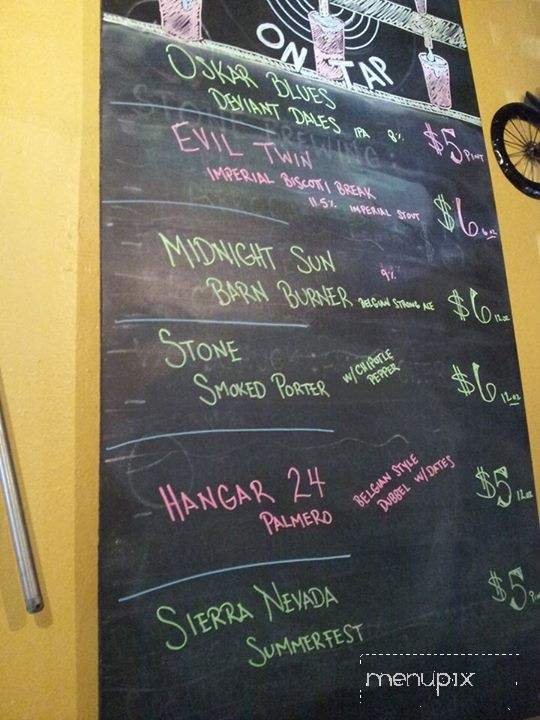 ON TAP
OSKAR BLUES
DEVIANT DALES IPA 8% $5 PINT
EVIL TWIN
IMPERIAL BISCOTTI BREAK
11.5% IMPERIAL STOUT $6 6 OZ
MIDNIGHT SUN 9%
BARN BURNER BELGIAN STRONG ALE $6 12 OZ
STONE
SMOKED PORTER W/ CHIPOTLE PEPPER $6 12 OZ
HANGAR 24
PALMERO BELGIAN STYLE DUBBEL W/ DATES $5 12 OZ
SIERRA NEVADA $5
SUMMERFEST
menupix